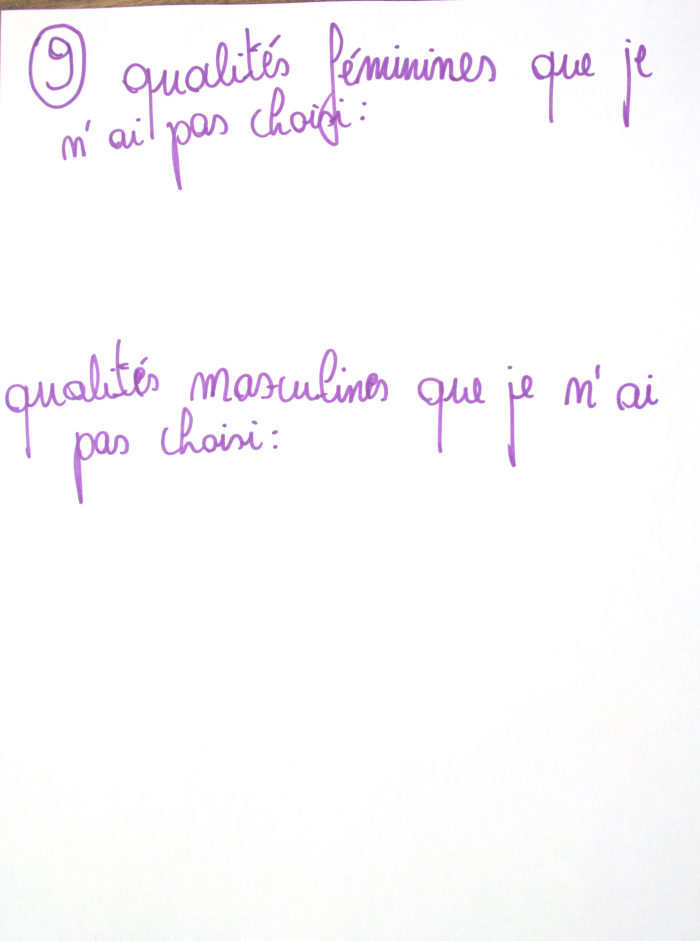 9 qualités féminines que je
n'ai pas choisi:
qualités masculines que je n'ai
pas choisi: